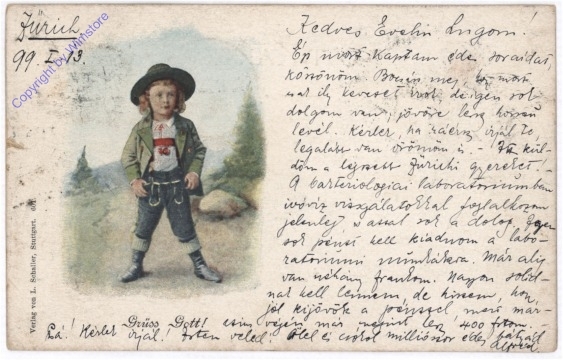 Zürich,
99. I. 13.
Copyright by Wimstore
Kedves Evelin hugom!
Ép most kaptam édes soraidat,
köszönöm. Bocsáss meg, hogy most
már ily keveset irok de igen sok
dolgom van; jövőre lesz hosszú
levél. Kérlek, ha ráérsz, irjál te,
legalább van örömöm is. - Itt kül-
döm a legszebb Zürichi gyereket!
A bacteriologiai laboratoriumban
ivóviz vizsgálatokkal foglalkozom
jelenleg, s azzal sok a dolog. Igen
sok pénzt kell kiadnom a labo-
ratoriumi munkákra. Már alig
van néhány frankom. Nagyon solid-
nak kell lennem, de hiszem, hogy
jól kijövök a pénzzel, mert már-
végén már megint lesz 400 frtom.
Pá! Kérlek irjál! Isten veled! Ölel és csókol milliószor édes bátyád
Grüss Gott!
Verlag von L. Schaller, Stuttgart.